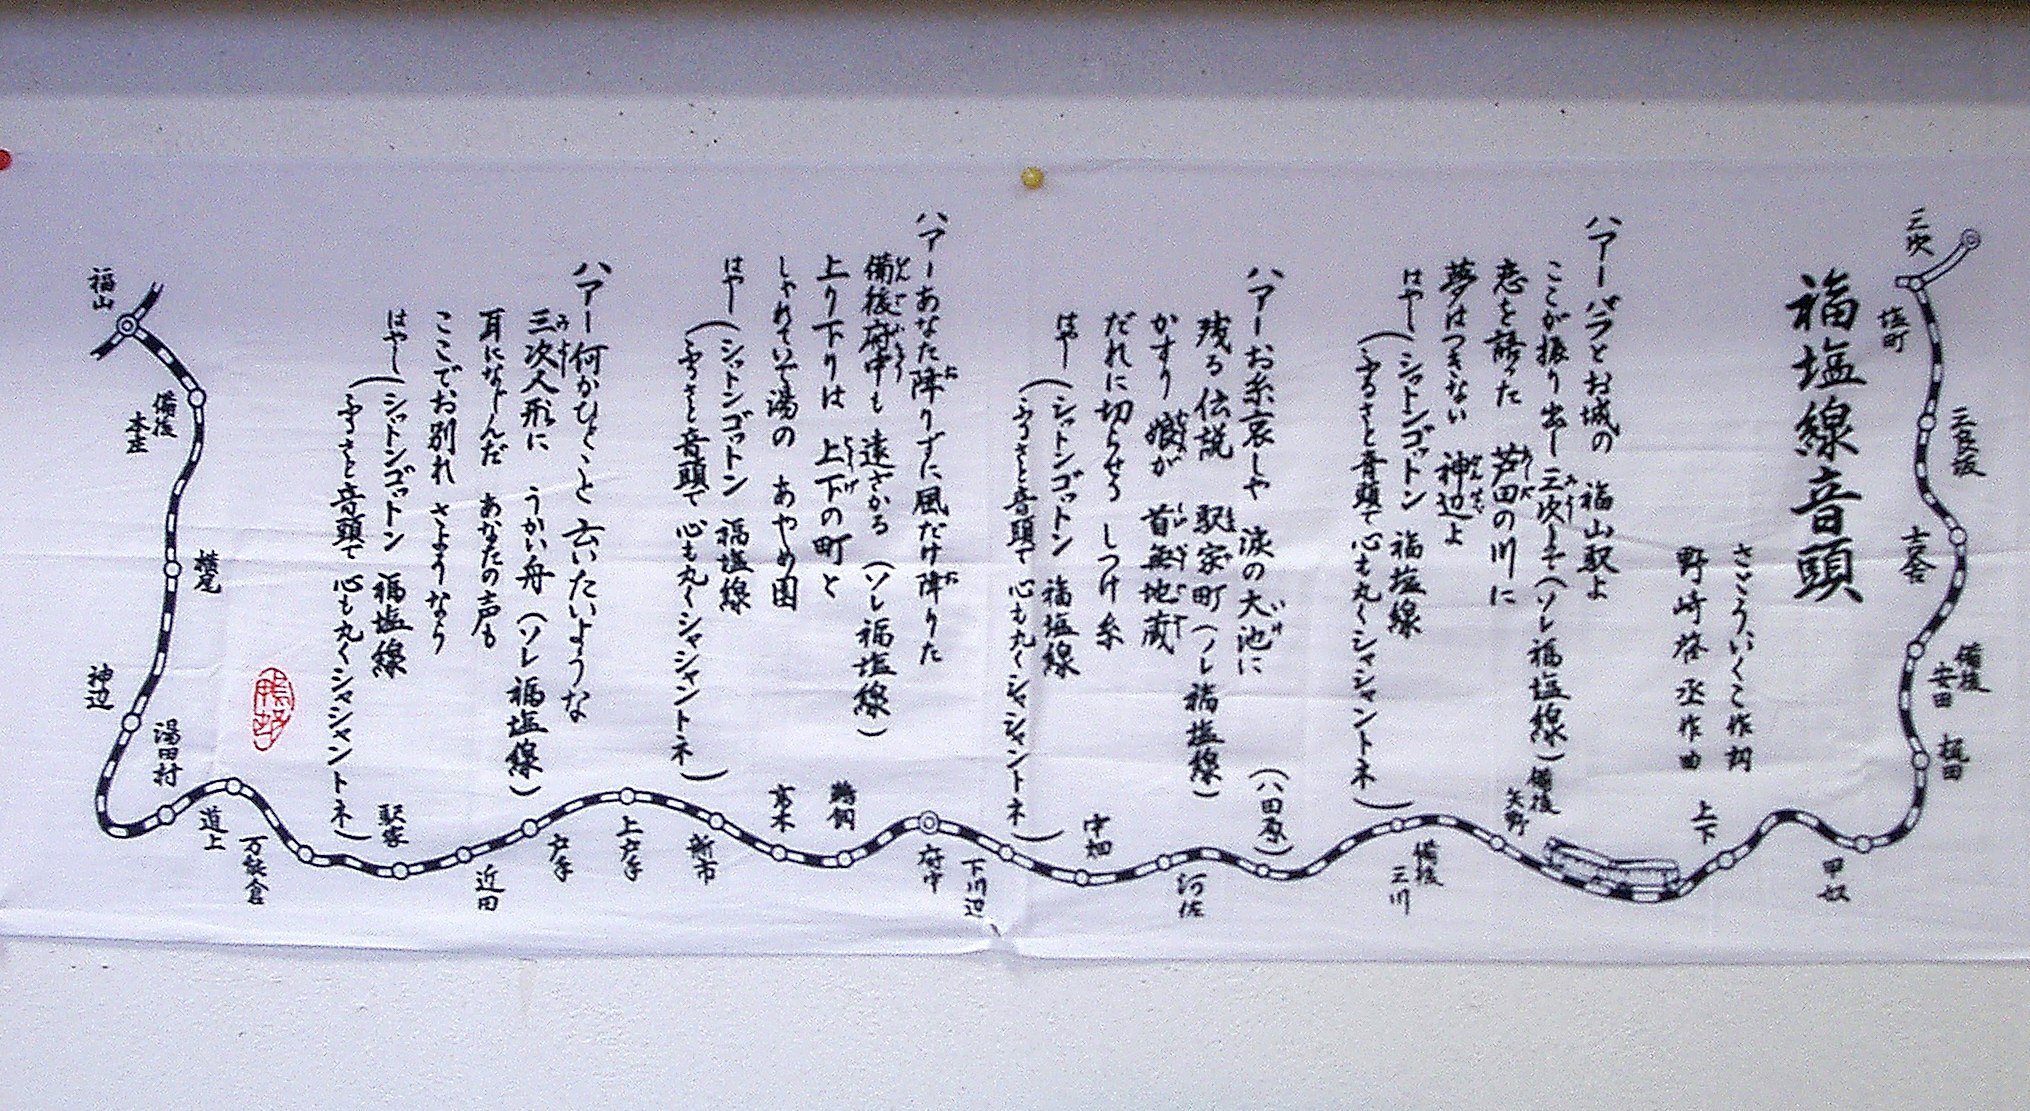 福塩線音頭
さどういくこ作詞
野崎 丞作曲
ハアーバラとお城の 福山駅よ
ここが振り出し三次まで(ソレ福塩線)
恋を誘った 芦田の川に
夢はつきない 神辺よ
はやし(シャットンゴットン 福塩線
ふるさと音頭で 心も丸くシャシャントネ)
ハアーお糸哀しや 涙の大池に
残る伝説 駅家町(ソレ福塩線)
かすり娘が 首無地蔵
だれに切らせる しつけ糸
はやし(シャットンゴットン 福塩線
ふるさと音頭で 心も丸くシャシャントネ)
ハアーあなた降りずに風だけ降りた
備後府中も 遠ざかる (ソレ福塩線)
上り下りは 上下の町と
しゃれていで湯の あやめ園
はやし(シャットンゴットン 福塩線
ふるさと音頭で 心も丸くシャシャントネ)
ハアー何かひとこと 云いたいような
三次人形に うかい舟(ソレ福塩線)
耳になじんだ あなたの声も
ここでお別れ さようなら
はやし(シャットンゴットン 福塩線
ふるさと音頭で 心も丸くシャシャントネ)
三次
塩町
三良坂
吉舎
備後安田
梶田
甲奴
上下
備後矢野
備後三川
(八田原)
河佐
中畑
下川辺
府中
鵜飼
高木
新市
上戸手
戸手
近田
駅家
万能倉
道上
湯田村
神辺
横尾
備後本庄
福山